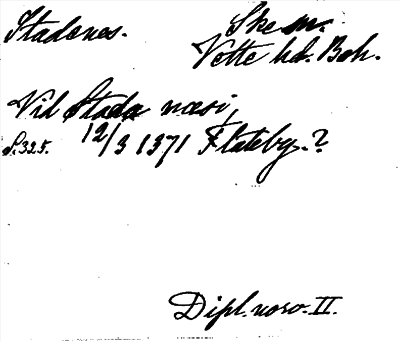 Stadenes. Ske sn.
Vette hd. Boh.
Vid Stada næsi,
S. 325. 12/3 1371 Flateby.?
Dipl. norv. II.